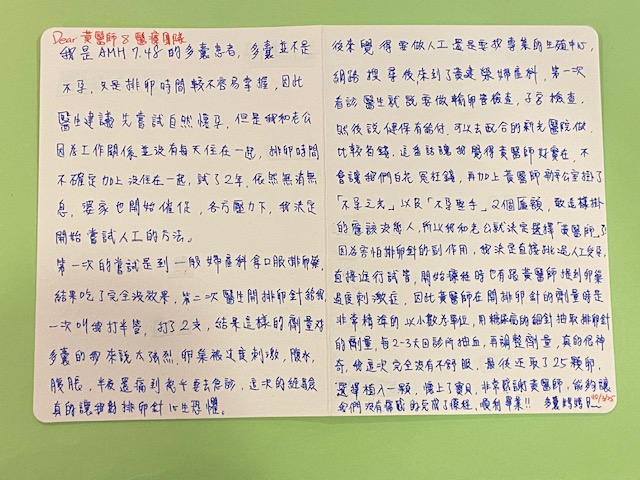 Dear 黃醫師 & 醫護團隊
我是AMH 7.48的多囊患者, 多囊並不是
不孕, 只是排卵時間較不容易掌握, 因此
醫生建議先嘗試自然懷孕, 但是我和老公
因為工作關係並沒有每天住在一起, 排卵時間
不確定加上沒住在一起, 試了2年, 依然無消無
息, 婆家也開始催促, 各方壓力下, 我決定
開始嘗試人工的方法。
第一次的嘗試是到一般婦產科拿口服排卵藥,
結果吃了完全沒效果, 第二次醫生開排卵針給我
一次叫我打半管, 打了2支, 結果這樣的劑量對
多囊的我來說太強烈, 卵巢被過度刺激, 腹水,
腹脹, 半夜還痛到起來去急診, 這次的經驗
真的讓我對排卵針心生恐懼。
後來覺得要做人工還是要找專業的生殖中心,
網路搜尋後來到了黃建榮婦產科, 第一次
看診醫生就說要做輸卵管檢查, 子宮檢查,
然後說健保有給付, 可以去配合的新光醫院做,
比較省錢, 這番話讓我覺得黃醫師好實在, 不
會讓我們白花冤枉錢, 再加上黃醫師辦公室掛了
「不孕之光」以及「不孕聖手」2個匾額, 敢這樣掛
的應該沒幾人, 所以我和老公就決定選擇「黃醫師」了
因為害怕排卵針的副作用, 我決定直接跳過人工受孕,
直接進行試管, 開始療程時也有跟黃醫師提到卵巢
過度刺激症, 因此黃醫師在開排卵針的劑量時是
非常精準的以小數為單位, 用糖尿病的細針抽取排卵針
的劑量, 每2-3天回診所抽血, 再調整劑量, 真的很神
奇, 我這次完全沒有不舒服, 最後還取了25顆卵,
選擇植入一顆, 懷上了寶貝, 非常感謝黃醫師, 能夠讓
我們沒有痛苦的完成了療程, 順利畢業!!